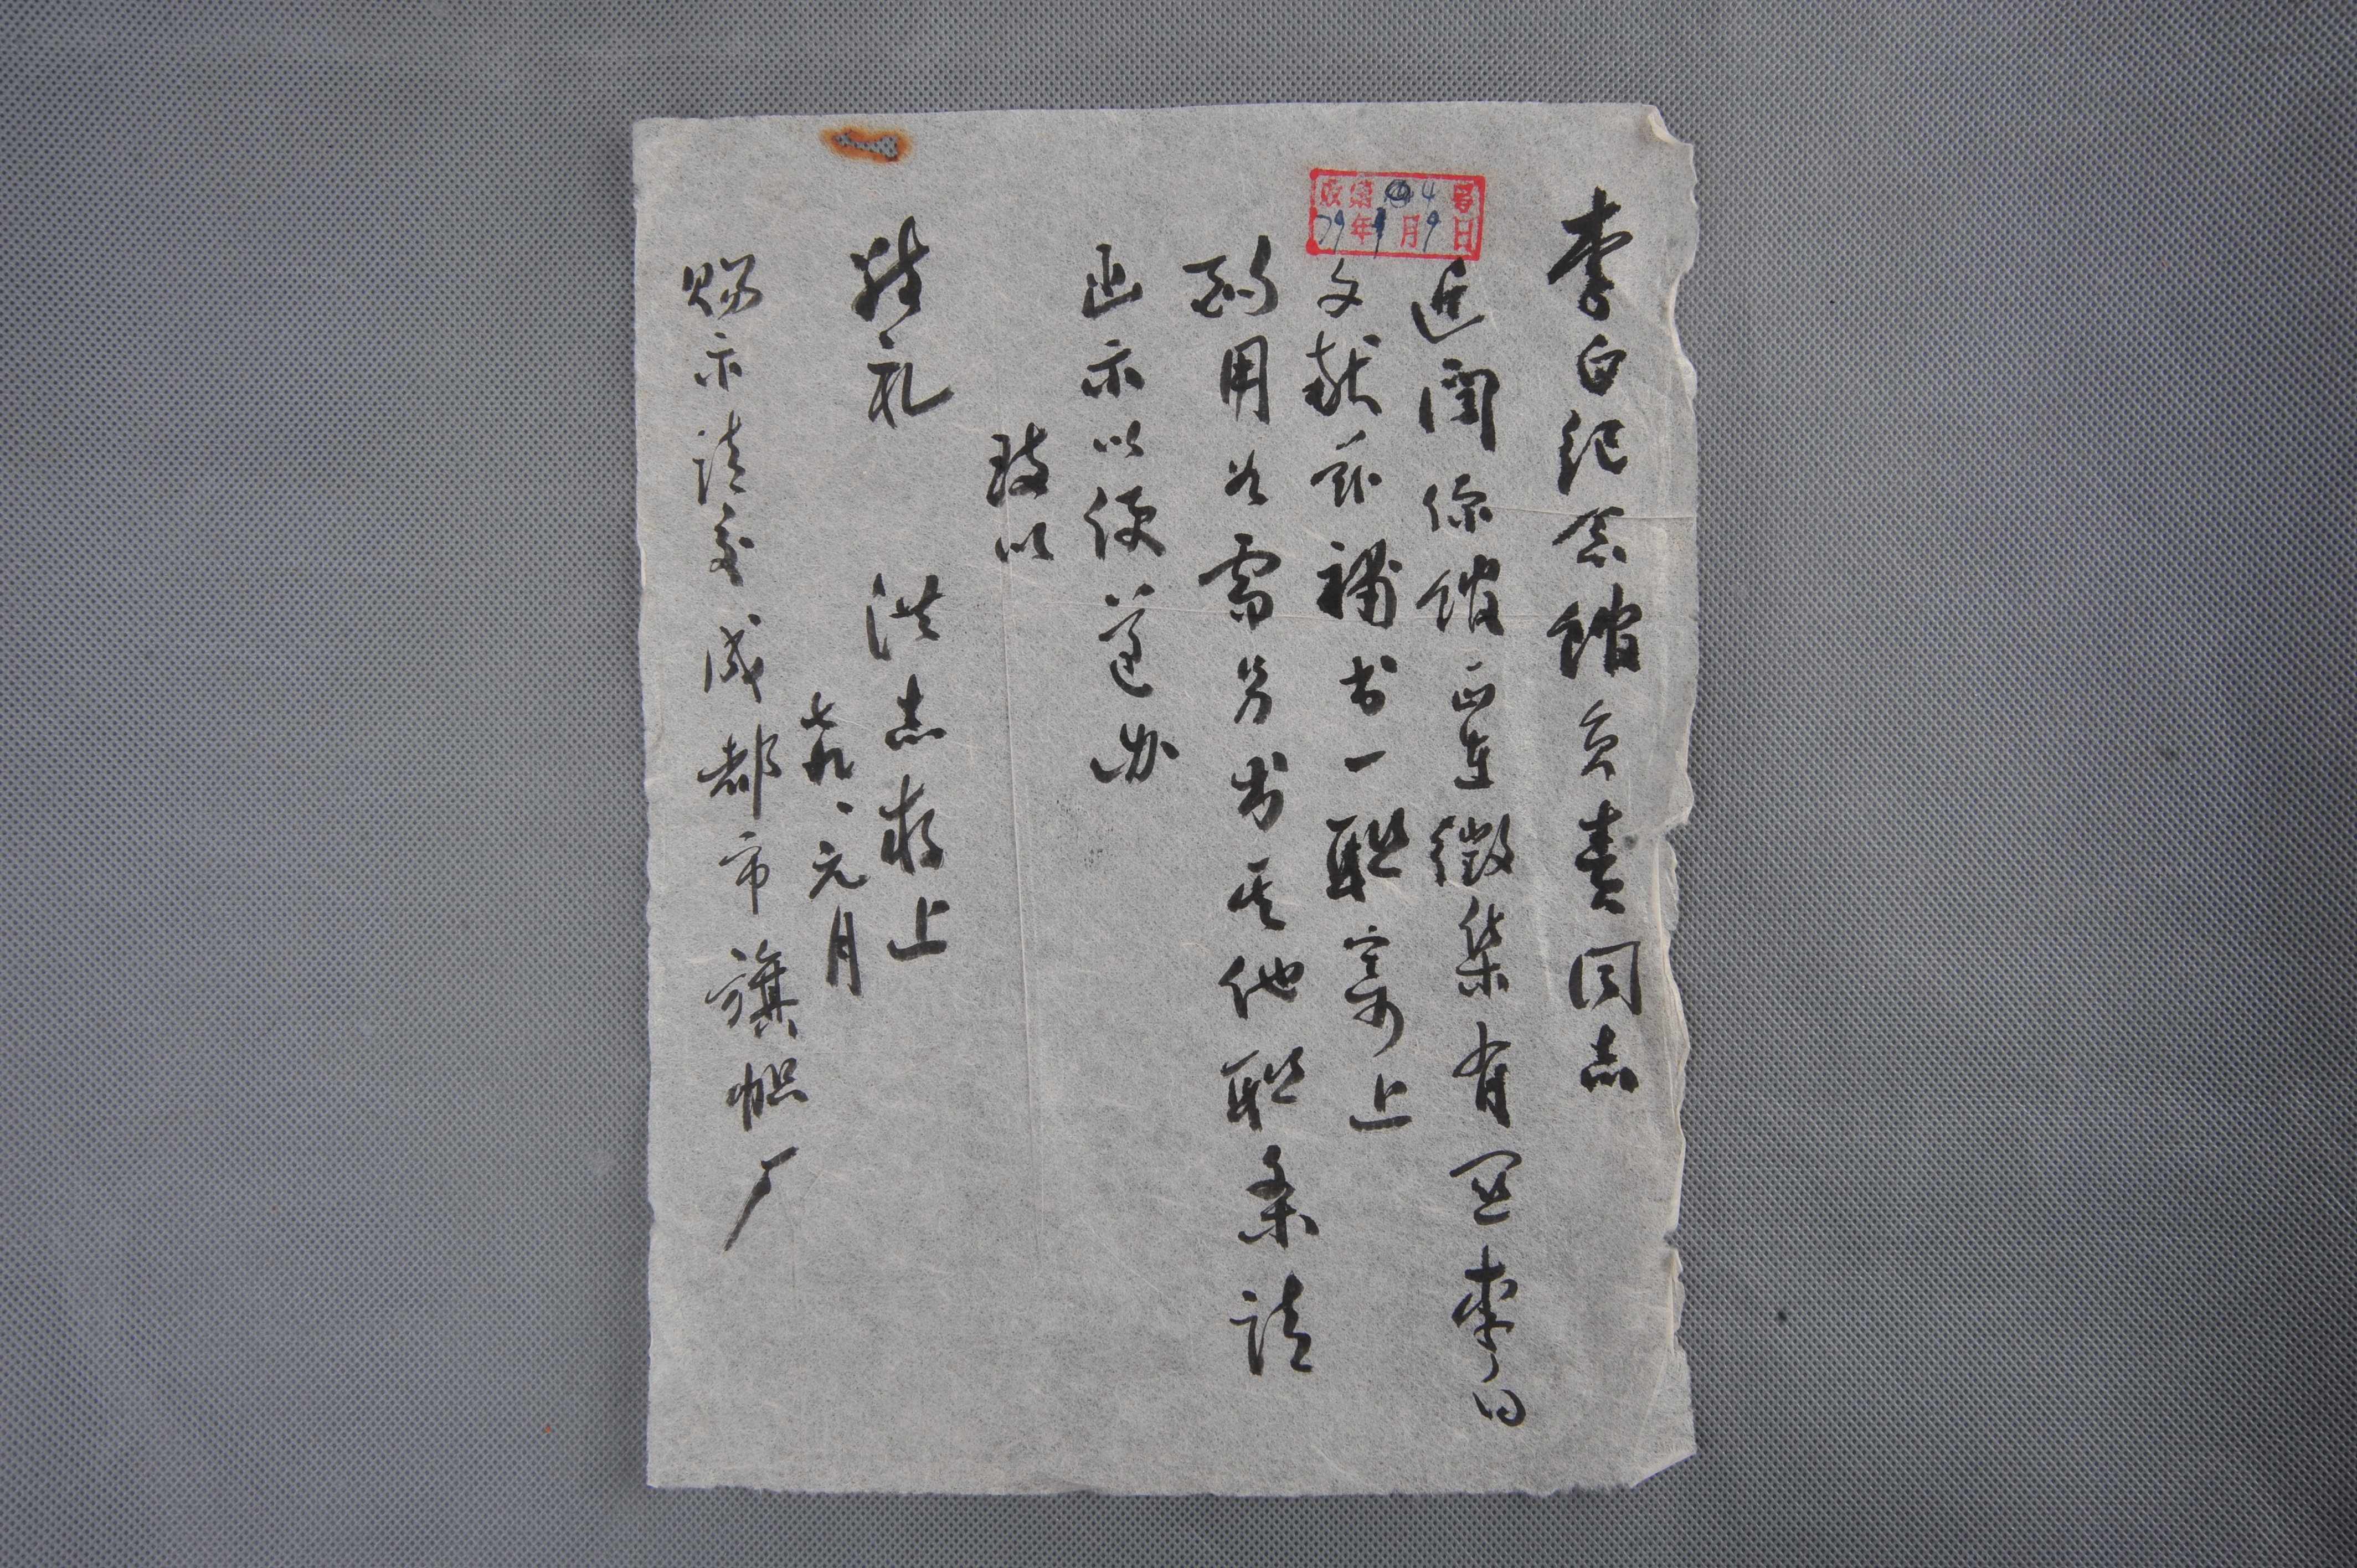 李白纪念馆负责同志
近闻你馆正在徵集有关李白
文献兹补书一联寄上
酌用如需另书其他联条请
函示以便遵办
致以
敬礼
洪志存上
七九、元月
赐示请交成都市旗帜厂
收第4号
79年1月9日